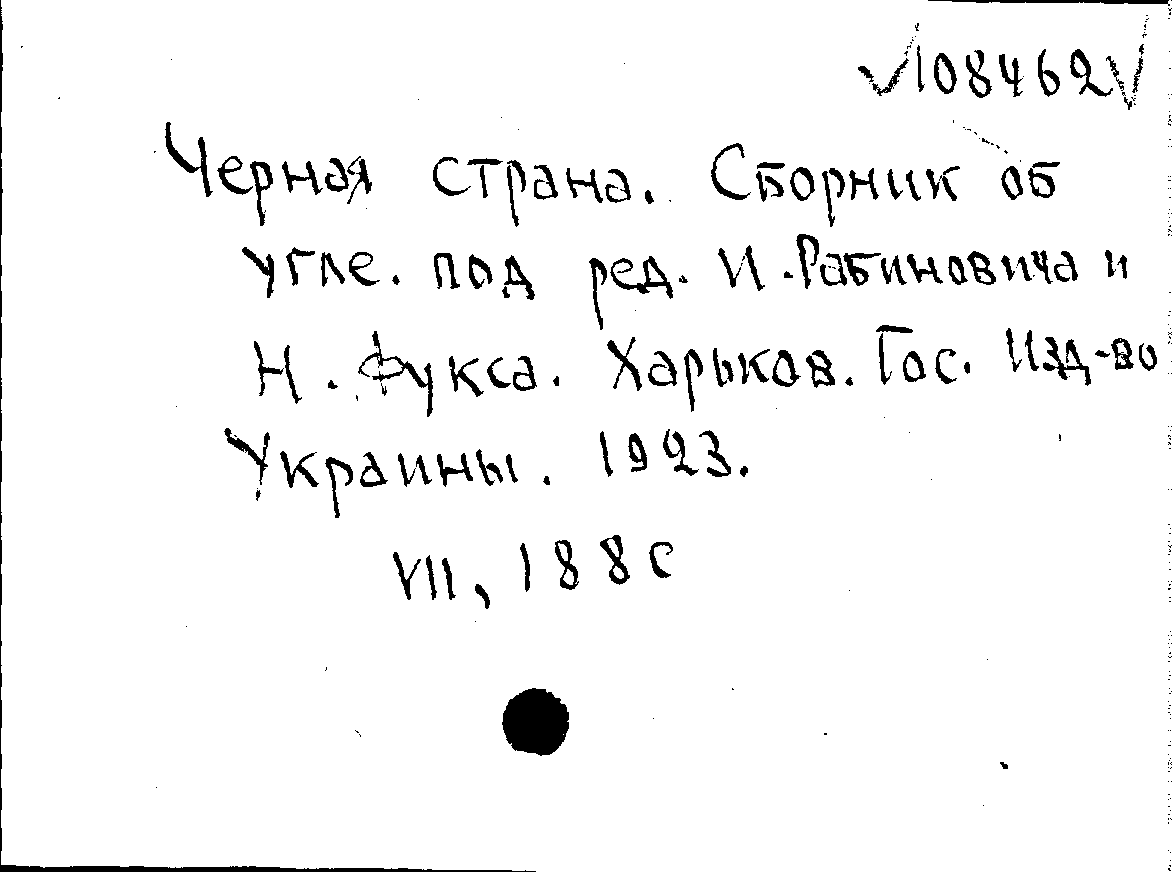 √108462√
Черная страна. Сборник об
угле. под ред. И. Рабиновича и
Н. Фукса. Харьков. Гос. Изд-во
Украины. 1923.
VII, 188 с